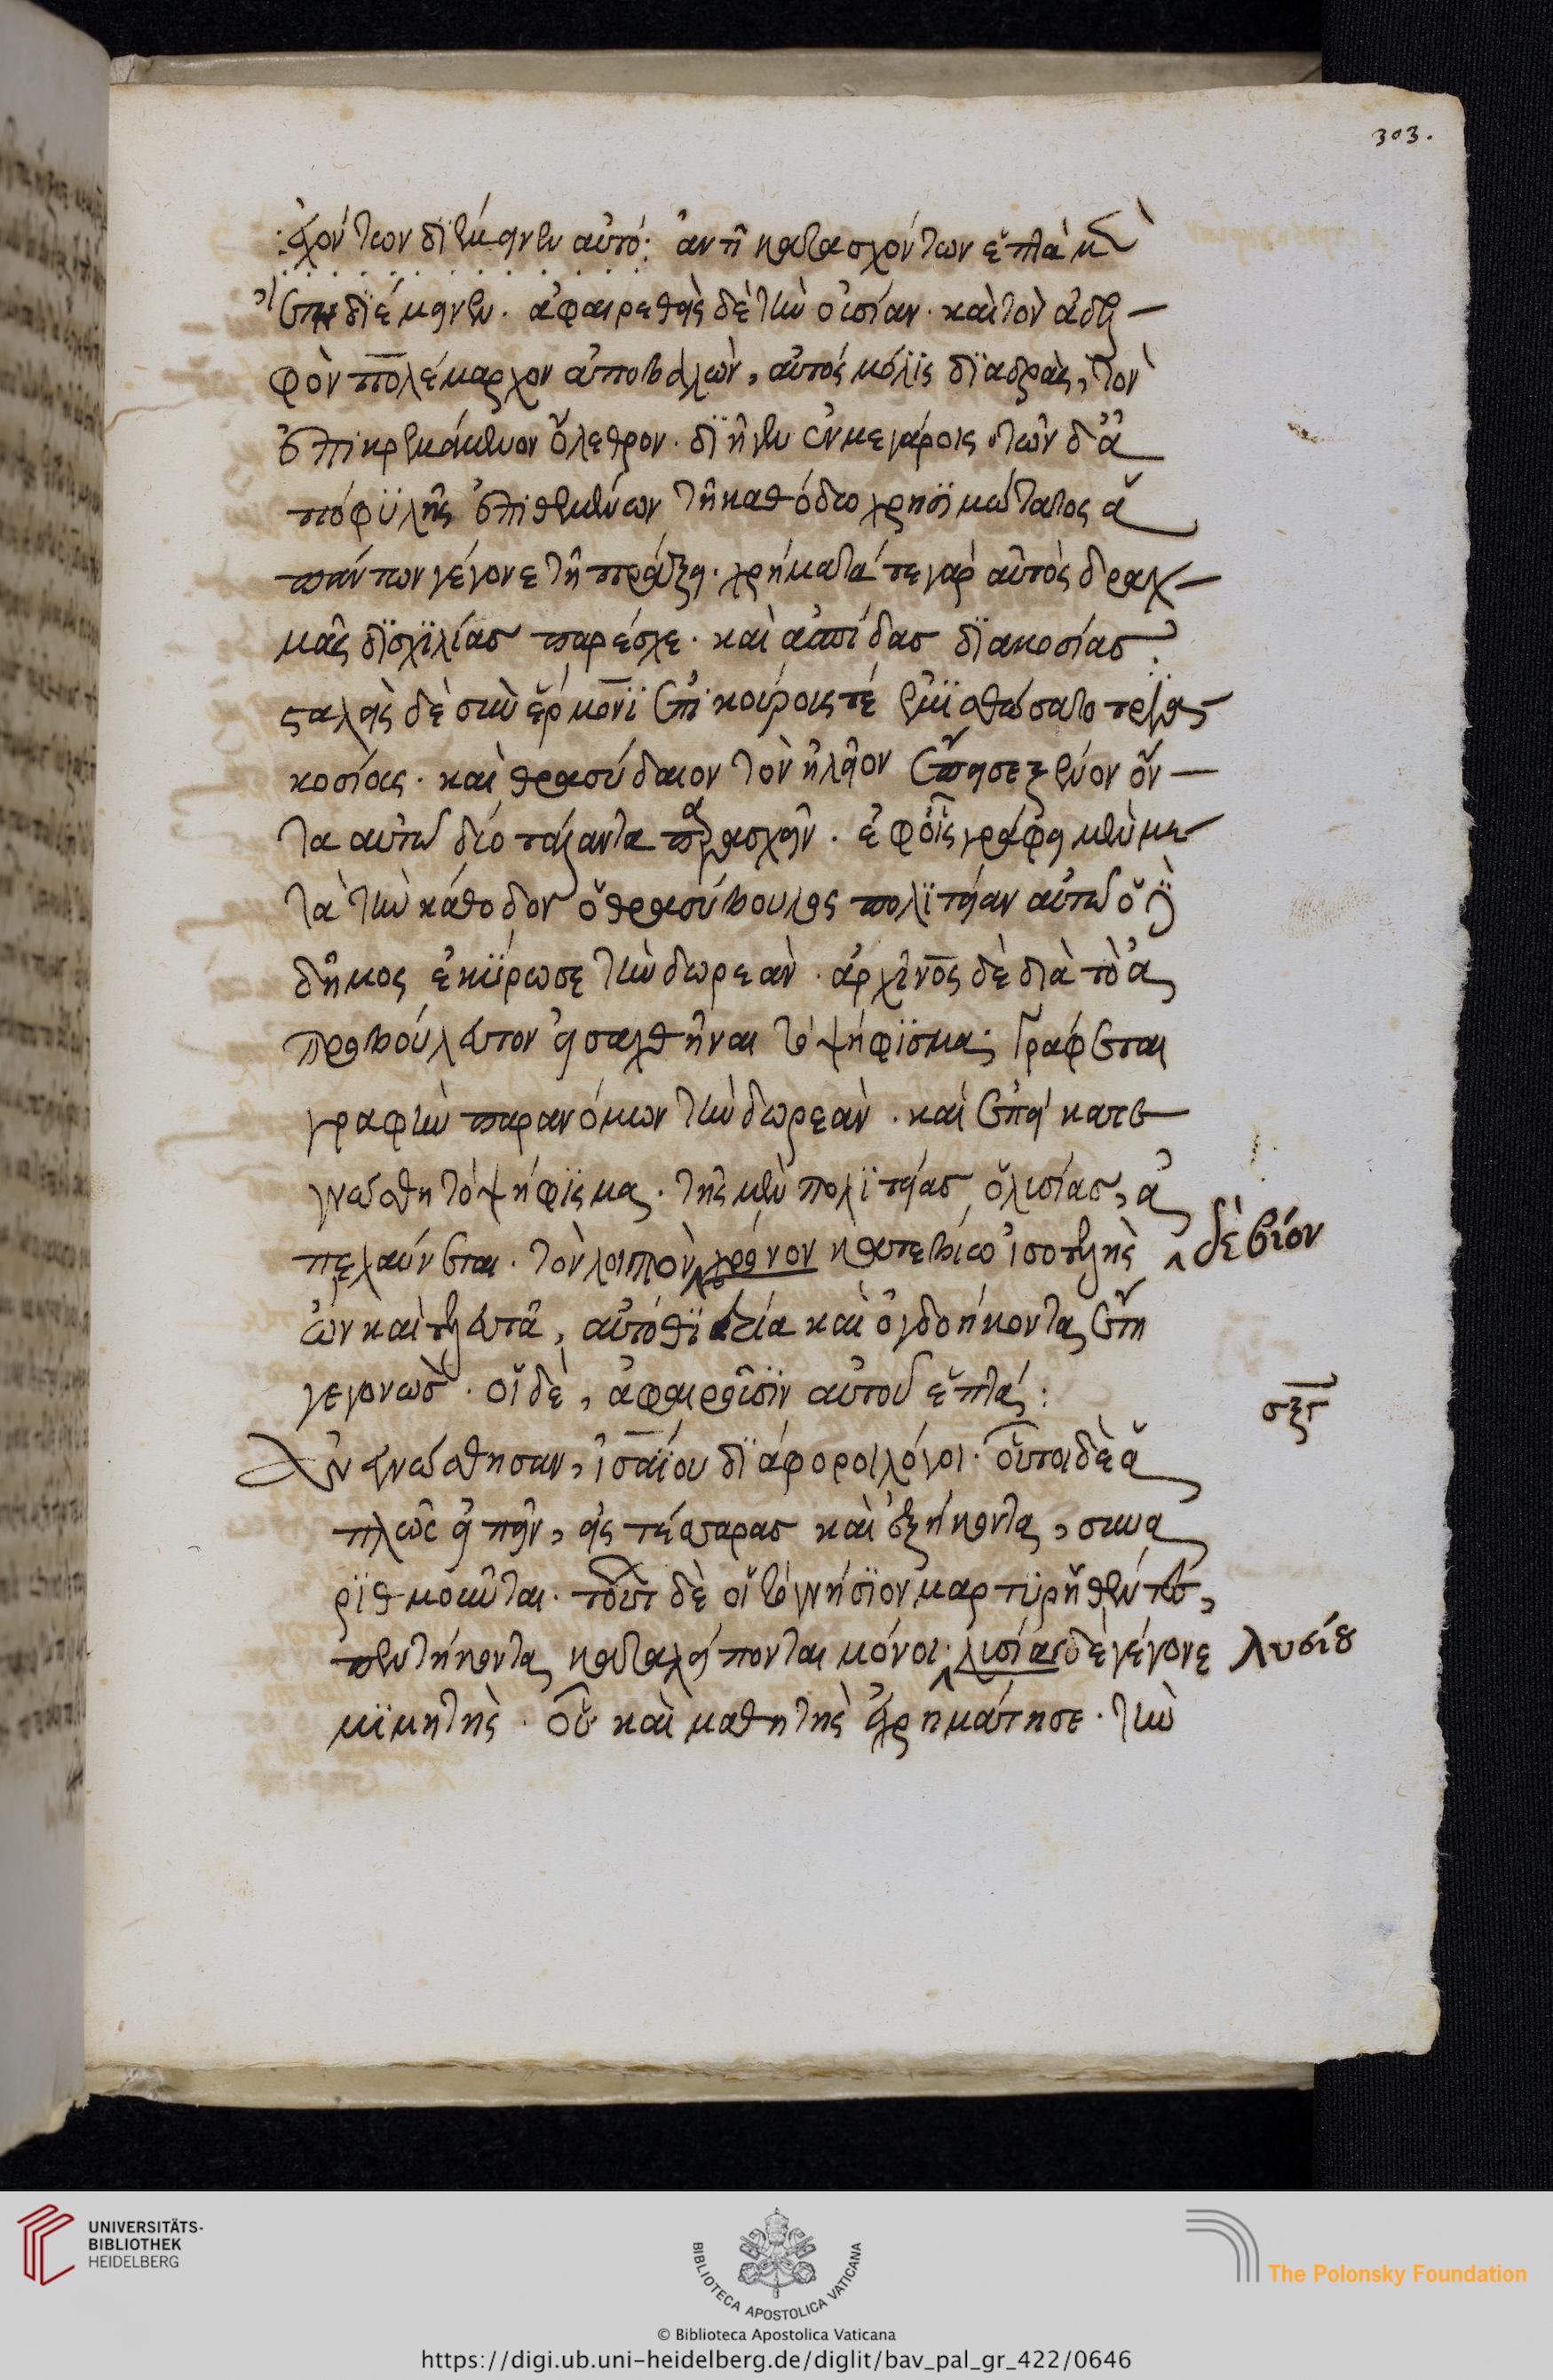 ἐχόντων διέμεινεν αὐτό: ἀντὶ κατασχόντων ἑπτὰ καὶ
ἔτη διέμεινεν. ἀφαιρεθεὶς δὲ τὴν οὐσίαν. καὶ τὸν ἀδελ-
φὸν πολέμαρχον ἀποβαλὼν, αὐτὸς μόλϊς δϊαδρὰς, τὸν
ἐπικρεμάμενον ὄλεθρον. δϊῆγεν ἐν μεγάροις. τῶν δ' ἀ
πὸ φϋλῆς ἐπιθεμένων τῆ καθόδω χρησϊμώτατος ἁ
πάντων γέγονε τῆ πράξει. χρήματά τε γὰρ αὐτὸς δραχ-
μὰς δϊσχϊλίας παρέσχε. καὶ ἀσπίδας δϊακοσίας.
σταλεὶς δὲ σὺν ἕρμονϊ ἐπϊκούροις τέ ἐμϊσθώσατο τρϊα-
κοσίοις. καὶ θρασύδαιον τὸν ἠλεῖον ἔπεισε ξένον ὄν-
τα αὐτῶ δύο τάλαντα παρασχεῖν. ἐφοῖς γράφει μὲν με-
τὰ τὴν κάθοδον ὁ θρασύβουλος πολϊτείαν αὐτῶ ὁ δὲ
δῆμος ἐκϋρωσε τὴν δωρεάν. ἀρχῖνος δὲ διὰ τὸ ἀ
προβούλευτον εἰσαχθῆναι τὸ ψήφϊσμα; γράφεται
γραφὴν παρανόμων τὴν δωρεὰν. καὶ ἐπεὶ κατε
γνώσθη τὸ ψήφϊσμα. τῆς μὲν πολϊτείας ὁ λυσίας, ἀ
πελαύνεται. τὸν λοιπὸν χρόνον κατεβίω ἰσοτελὴς δὲ βίον
ὢν καὶ τελευτᾶ, αὐτόθϊ τρία καὶ ὀγδοήκοντα ἔτη
γεγονώς. οἱ δὲ, ἀφαιροῦσϊν αὐτοῦ ἑπτά:
σξγ
Ἀνεγνώσθησαν, ἰσαίου δϊάφοροι λόγοι. οὗτοι δὲ ἁ
πλῶς εἰπεῖν, εἰς τέσσαρας καὶ ἑξήκοντα, συνα
ρϊθμοῦνται. τούτων δὲ οἱ τὸ γνήσϊον μαρτϋρηθέντες,
πεντήκοντα καταλείπονται μόνοι. λυσίας δὲ γέγονε λυσίου
μϊμητὴς. οὗ καὶ μαθητὴς ἐχρημάτησε. τὴν
303.
UNIVERSITÄTS-
BIBLIOTHEK
HEIDELBERG
BIBLIOTECA APOSTOLICA VATICANA
The Polonsky Foundation
© Biblioteca Apostolica Vaticana
https://digi.ub.uni-heidelberg.de/diglit/bav_pal_gr_422/0646